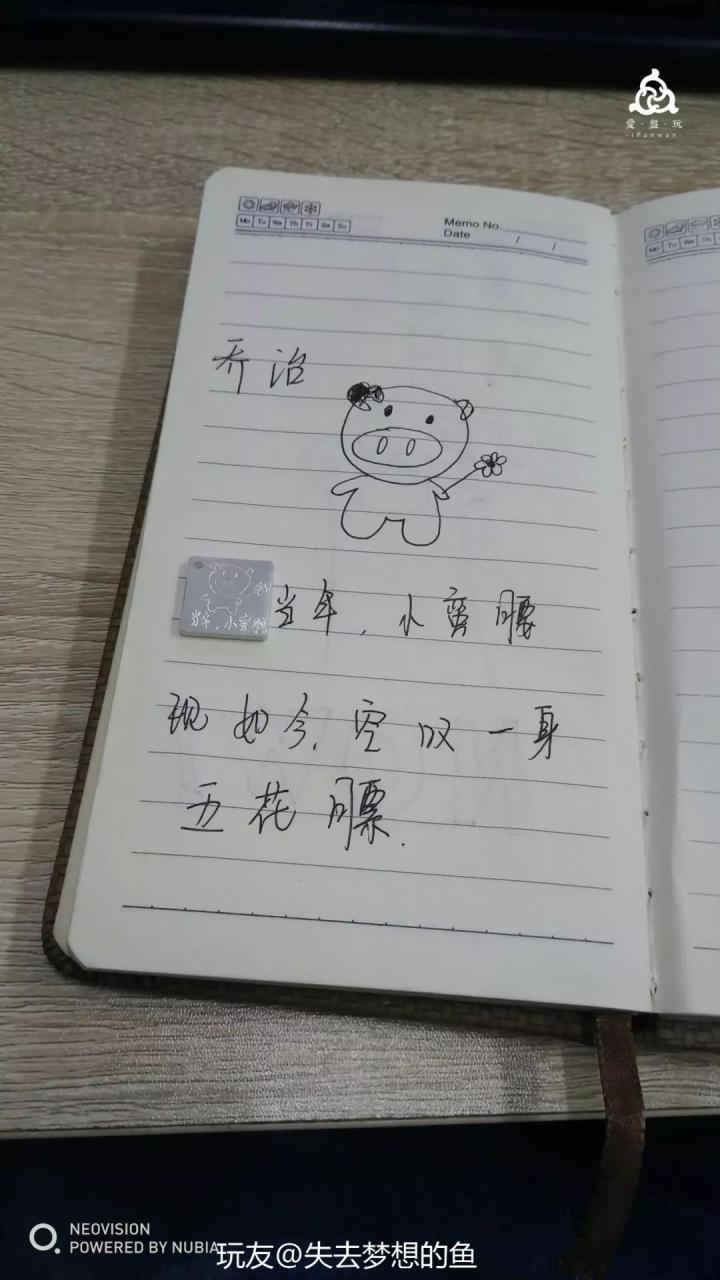 愛·盤·玩
·iPanwan·
Mo Tu We Th Fr Sa Su
Memo No.
Date / /
Mo Tu We Th
乔治
当年,小蛮腰
当年,小蛮腰
现如今,空叹一身
五花膘.
NEOVISION
POWERED BY NUBIA
玩友@失去梦想的鱼